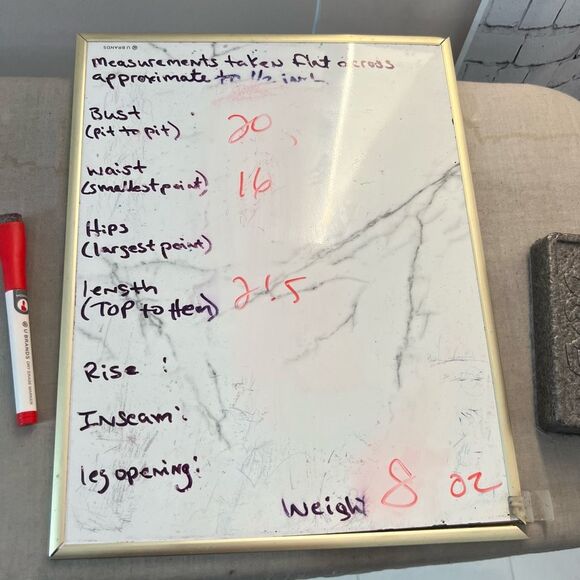 U BRANDS
Measurements taken flat across
approximate to 1/2 inch
Bust 20
(pit to pit)
Waist 16
(smallest point)
Hips
(largest point)
length 21.5
(TOP to Hem)
Rise :
Inseam:
leg opening:
Weight 8 oz
U BRANDS